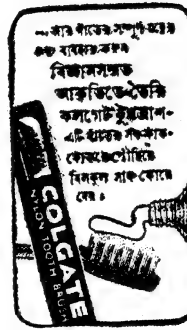 আর দাঁতের সম্পূর্ণ যত্নের
জন্য ব্যবহার করুন
বিজ্ঞানসম্মত
আকৃতিতে তৈরি
কলগেট টুথব্রাশ-
এটি দাঁতের সব ফাঁক-
পৌঁছিয়ে
বিলকুল সাফ কোরে
দেয়।
COLGATE
NYLON TOOTH BRUSH